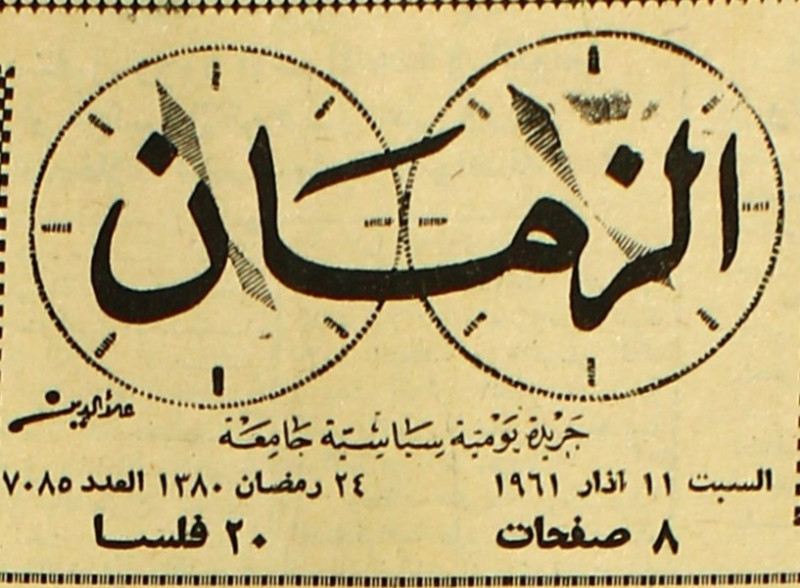 الزمان
علاء الدين
جَرِيدَة يَوْمِيَّة سِيَاسِيَّة جَامِعَة
السبت ١١ اذار ١٩٦١ ٢٤ رمضان ١٣٨٠ العدد ٧٠٨٥
٨ صفحات ٢٠ فلسا